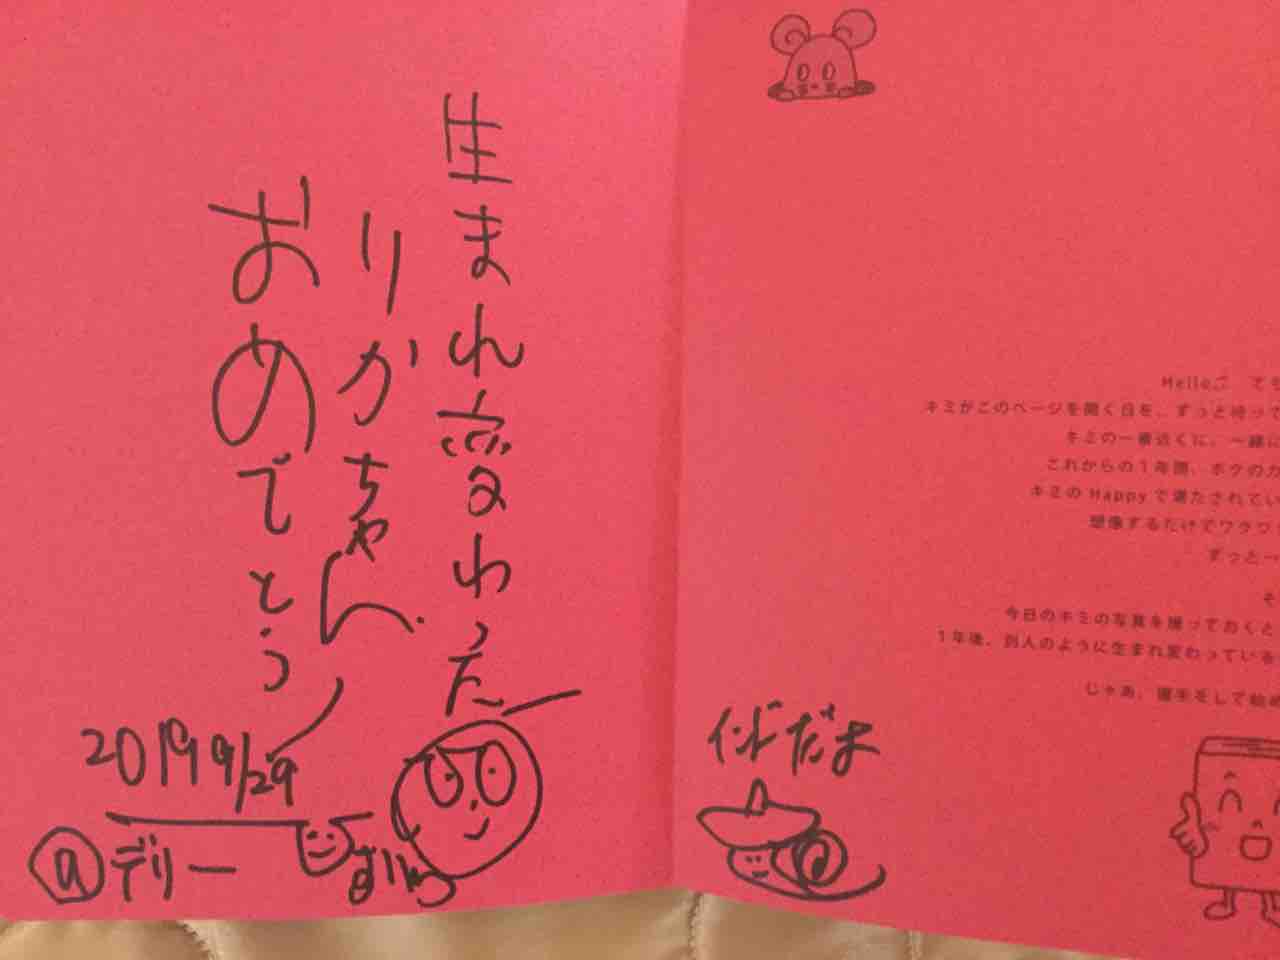 生まれ変わった
りかちゃん
おめでとう
2019 9/29
@デリー
インドだよ
Hello♫ てち
キミがこのページを開く日を、ずっと待って
キミの一番近くに、一緒に
これからの1年間、ボクの力
キミのHappyで満たされてい
想像するだけでワクワ
ずっと一
そ
今日のキミの写真を撮っておくと
1年後、別人のように生まれ変わっている
じゃあ、握手をして始め